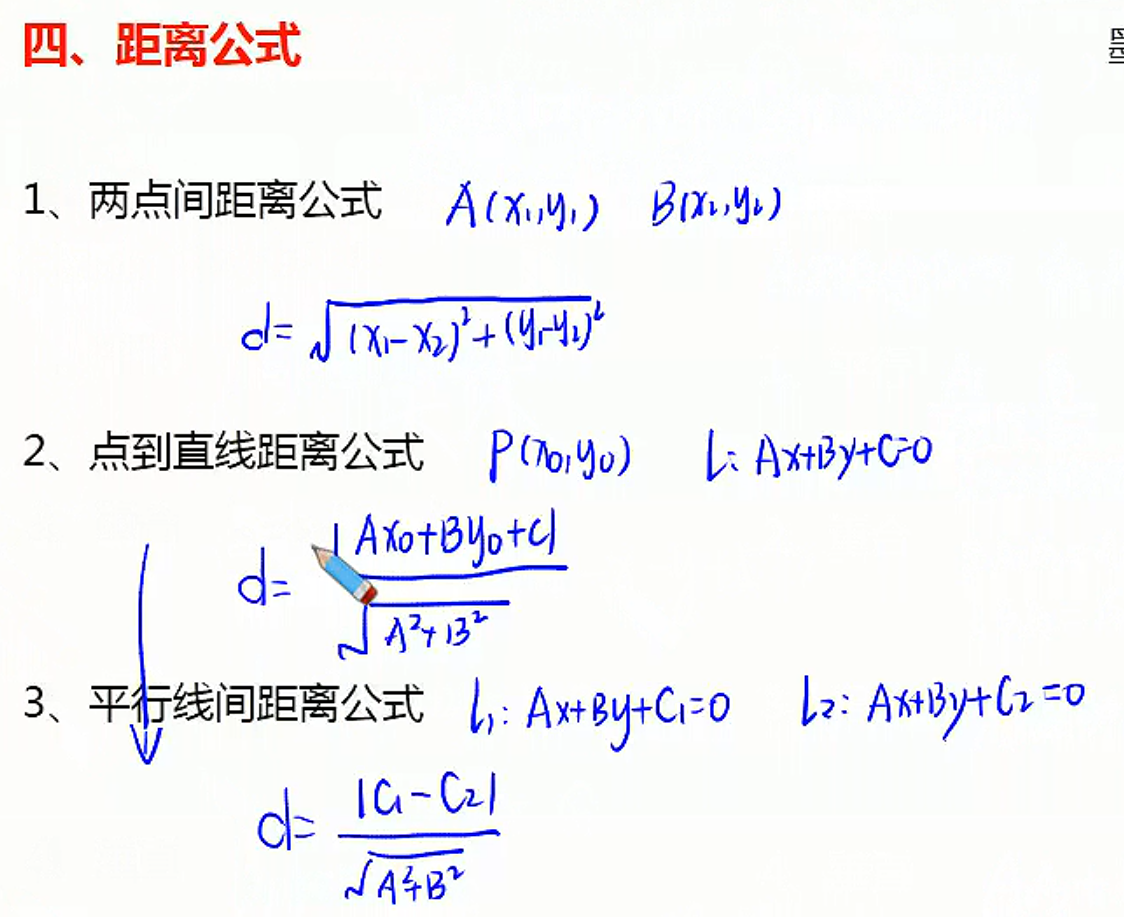 四、距离公式
1、两点间距离公式 A(x₁,y₁) B(x₂,y₂)
d=√((x₁-x₂)²+(y₁-y₂)²)
2、点到直线距离公式 P(x₀,y₀) L: Ax+By+C=0
d=|Ax₀+By₀+C|/√(A²+B²)
3、平行线间距离公式 L₁: Ax+By+C₁=0 L₂: Ax+By+C₂=0
d=|C₁-C₂|/√(A²+B²)